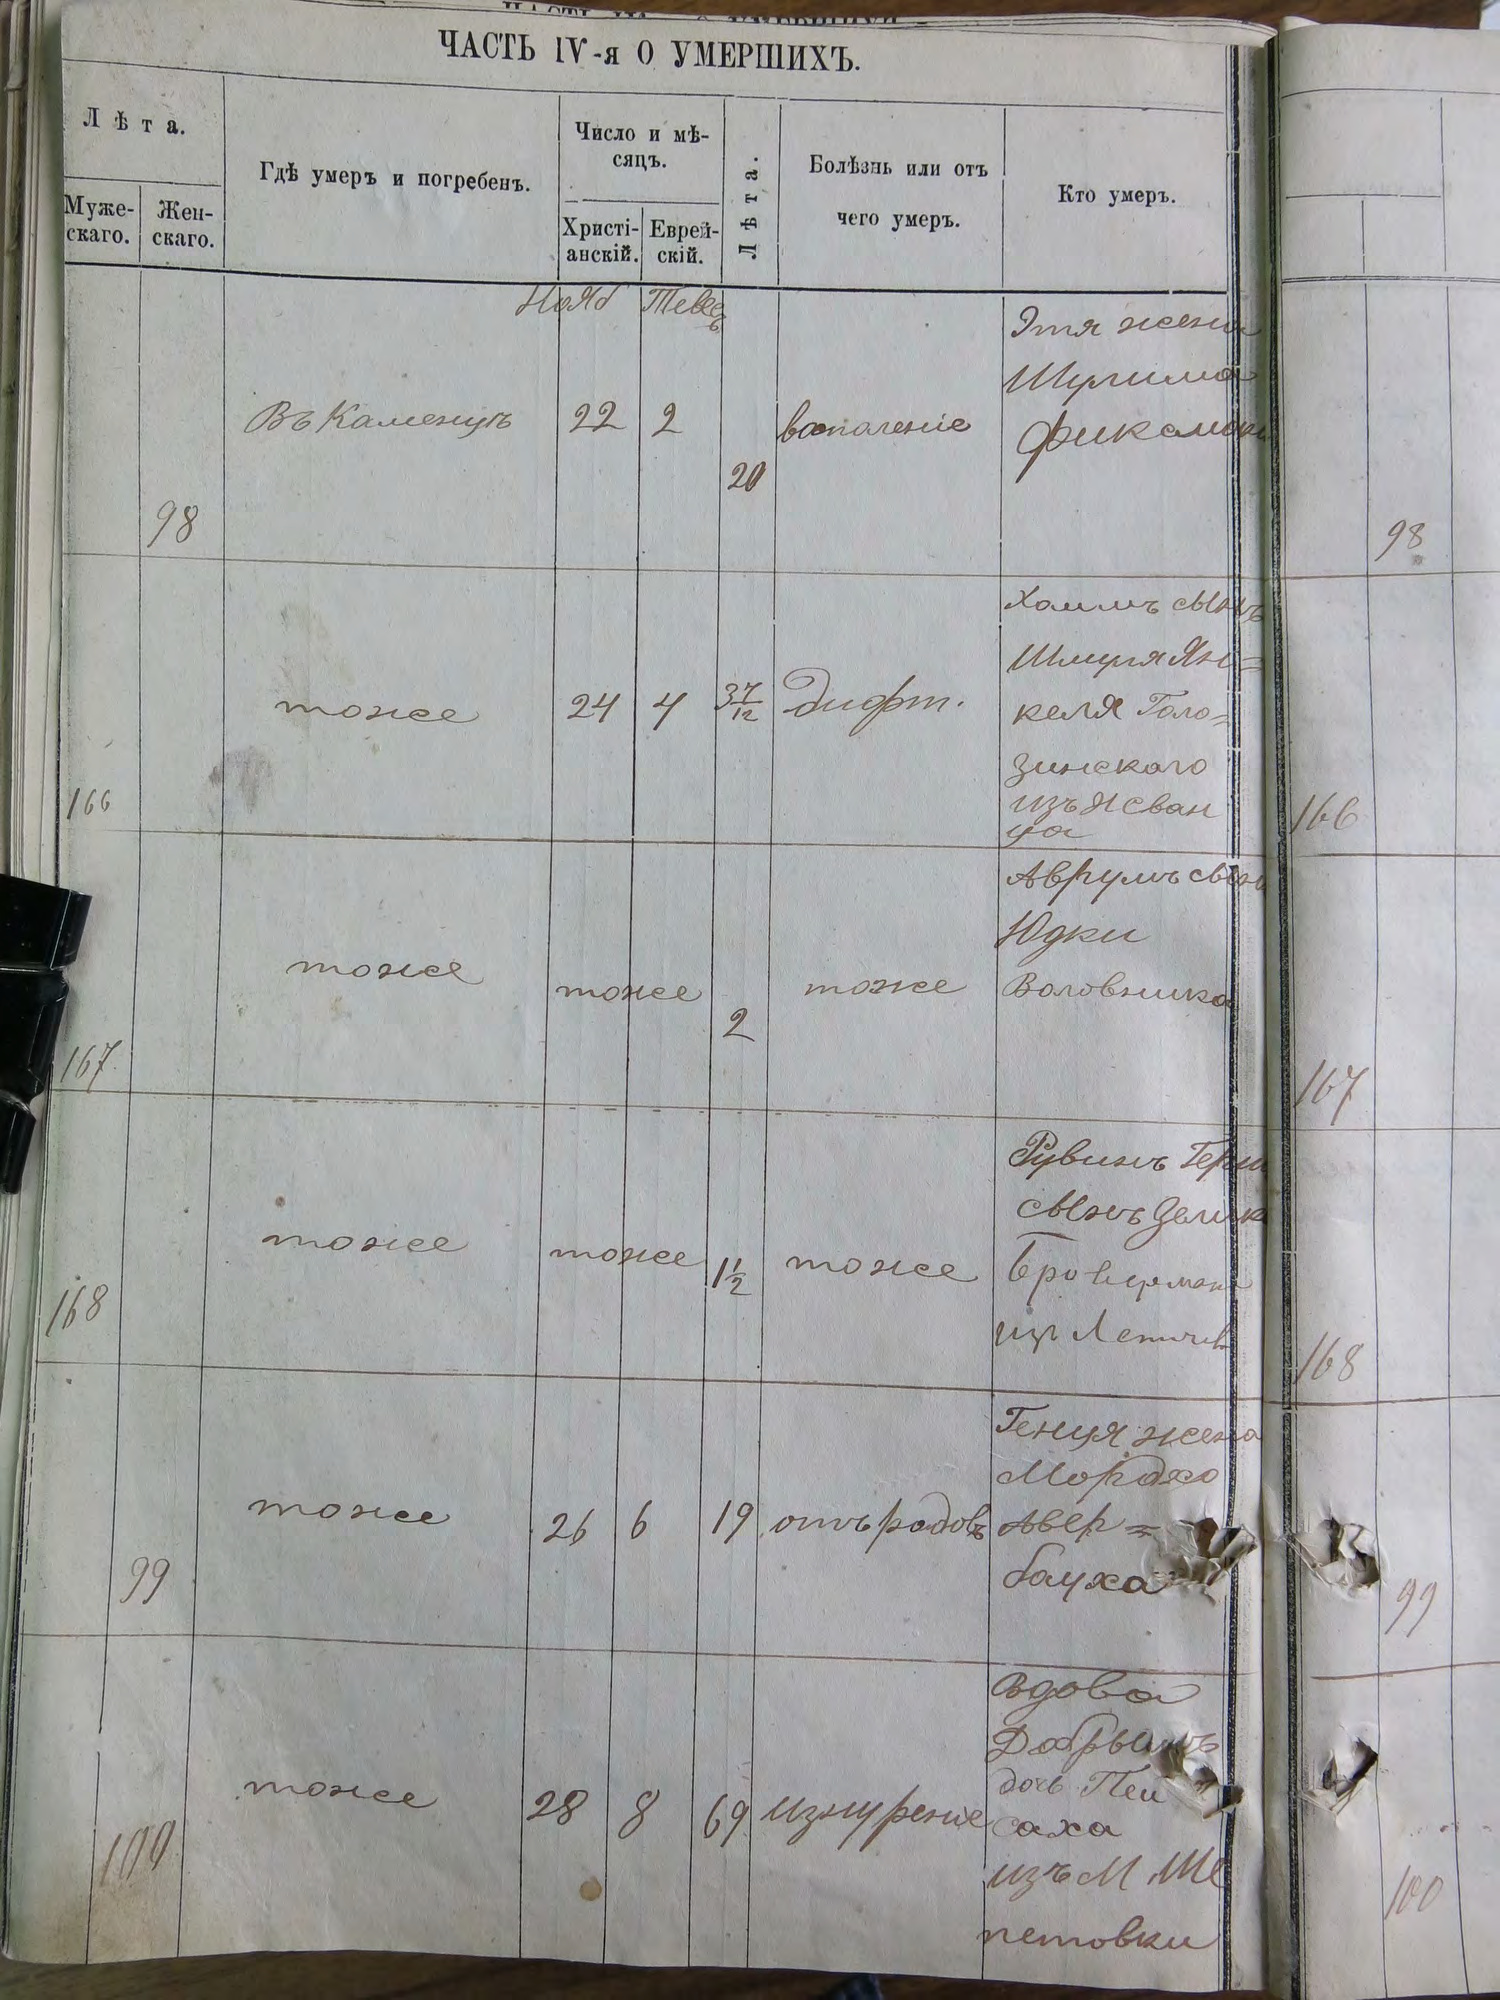 ЧАСТЬ IV-я О УМЕРШИХЪ.
Лѣта.
Муже-
скаго.
Жен-
скаго.
Гдѣ умеръ и погребенъ.
Число и мѣ-
сяцъ.
Христі-
анскій.
Еврей-
скій.
Лѣта.
Болѣзнь или отъ
чего умеръ.
Кто умеръ.
Нояб
98
Въ Каменцѣ
22
2
20
воспаленіе
Этя жена
Шулима
98
166
тоже
24
4
3 7/12
Дифт.
Хаимъ сынъ
Шмуля Ян=
келя Голо=
зинского
изъ Жван
ца
166
167
тоже
тоже
2
тоже
Аврумъ сынъ
Юдки
Воловника
167
168
тоже
тоже
1 1/2
тоже
Рувинъ Герш
сынъ Зелик
Бровермана
изъ Летичев
168
99
тоже
26
6
19
отъ родовъ
Генця жена
Мордхо
Авер=
бауха
99
100
тоже
28
8
69
изнуреніе
Вдова
дочь Пей
саха
изъ М. Ше
петовки
100